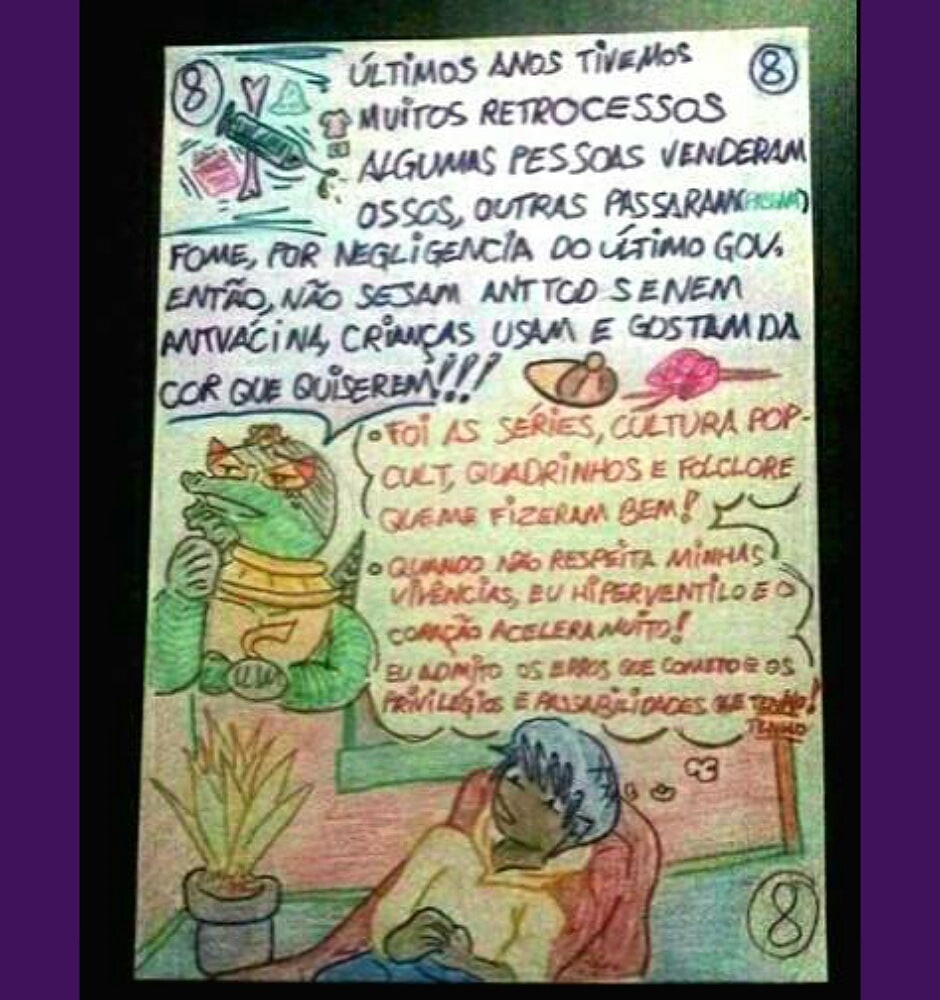 8
8
ÚLTIMOS ANOS TIVEMOS
MUITOS RETROCESSOS
ALGUMAS PESSOAS VENDERAM
OSSOS, OUTRAS PASSARAM
FOME, POR NEGLIGENCIA DO ÚLTIMO GOV.
ENTÃO, NÃO SEJAM ANT TOD S E NEM
ANTVACINA, CRIANÇAS USAM E GOSTAM DA
COR QUE QUISEREM!!!
• FOI AS SÉRIES, CULTURA POP-
CULT, QUADRINHOS E FOLCLORE
QUE ME FIZERAM BEM!
• QUANDO NÃO RESPEITA MINHAS
VIVÊNCIAS, EU HIPERVENTILO E O
CORAÇÃO ACELERA MUITO!
EU ADMITO OS ERROS QUE COMETO E OS
PRIVILÉGIOS E PASSABILIDADES QUE TENHO!
TENHO
8